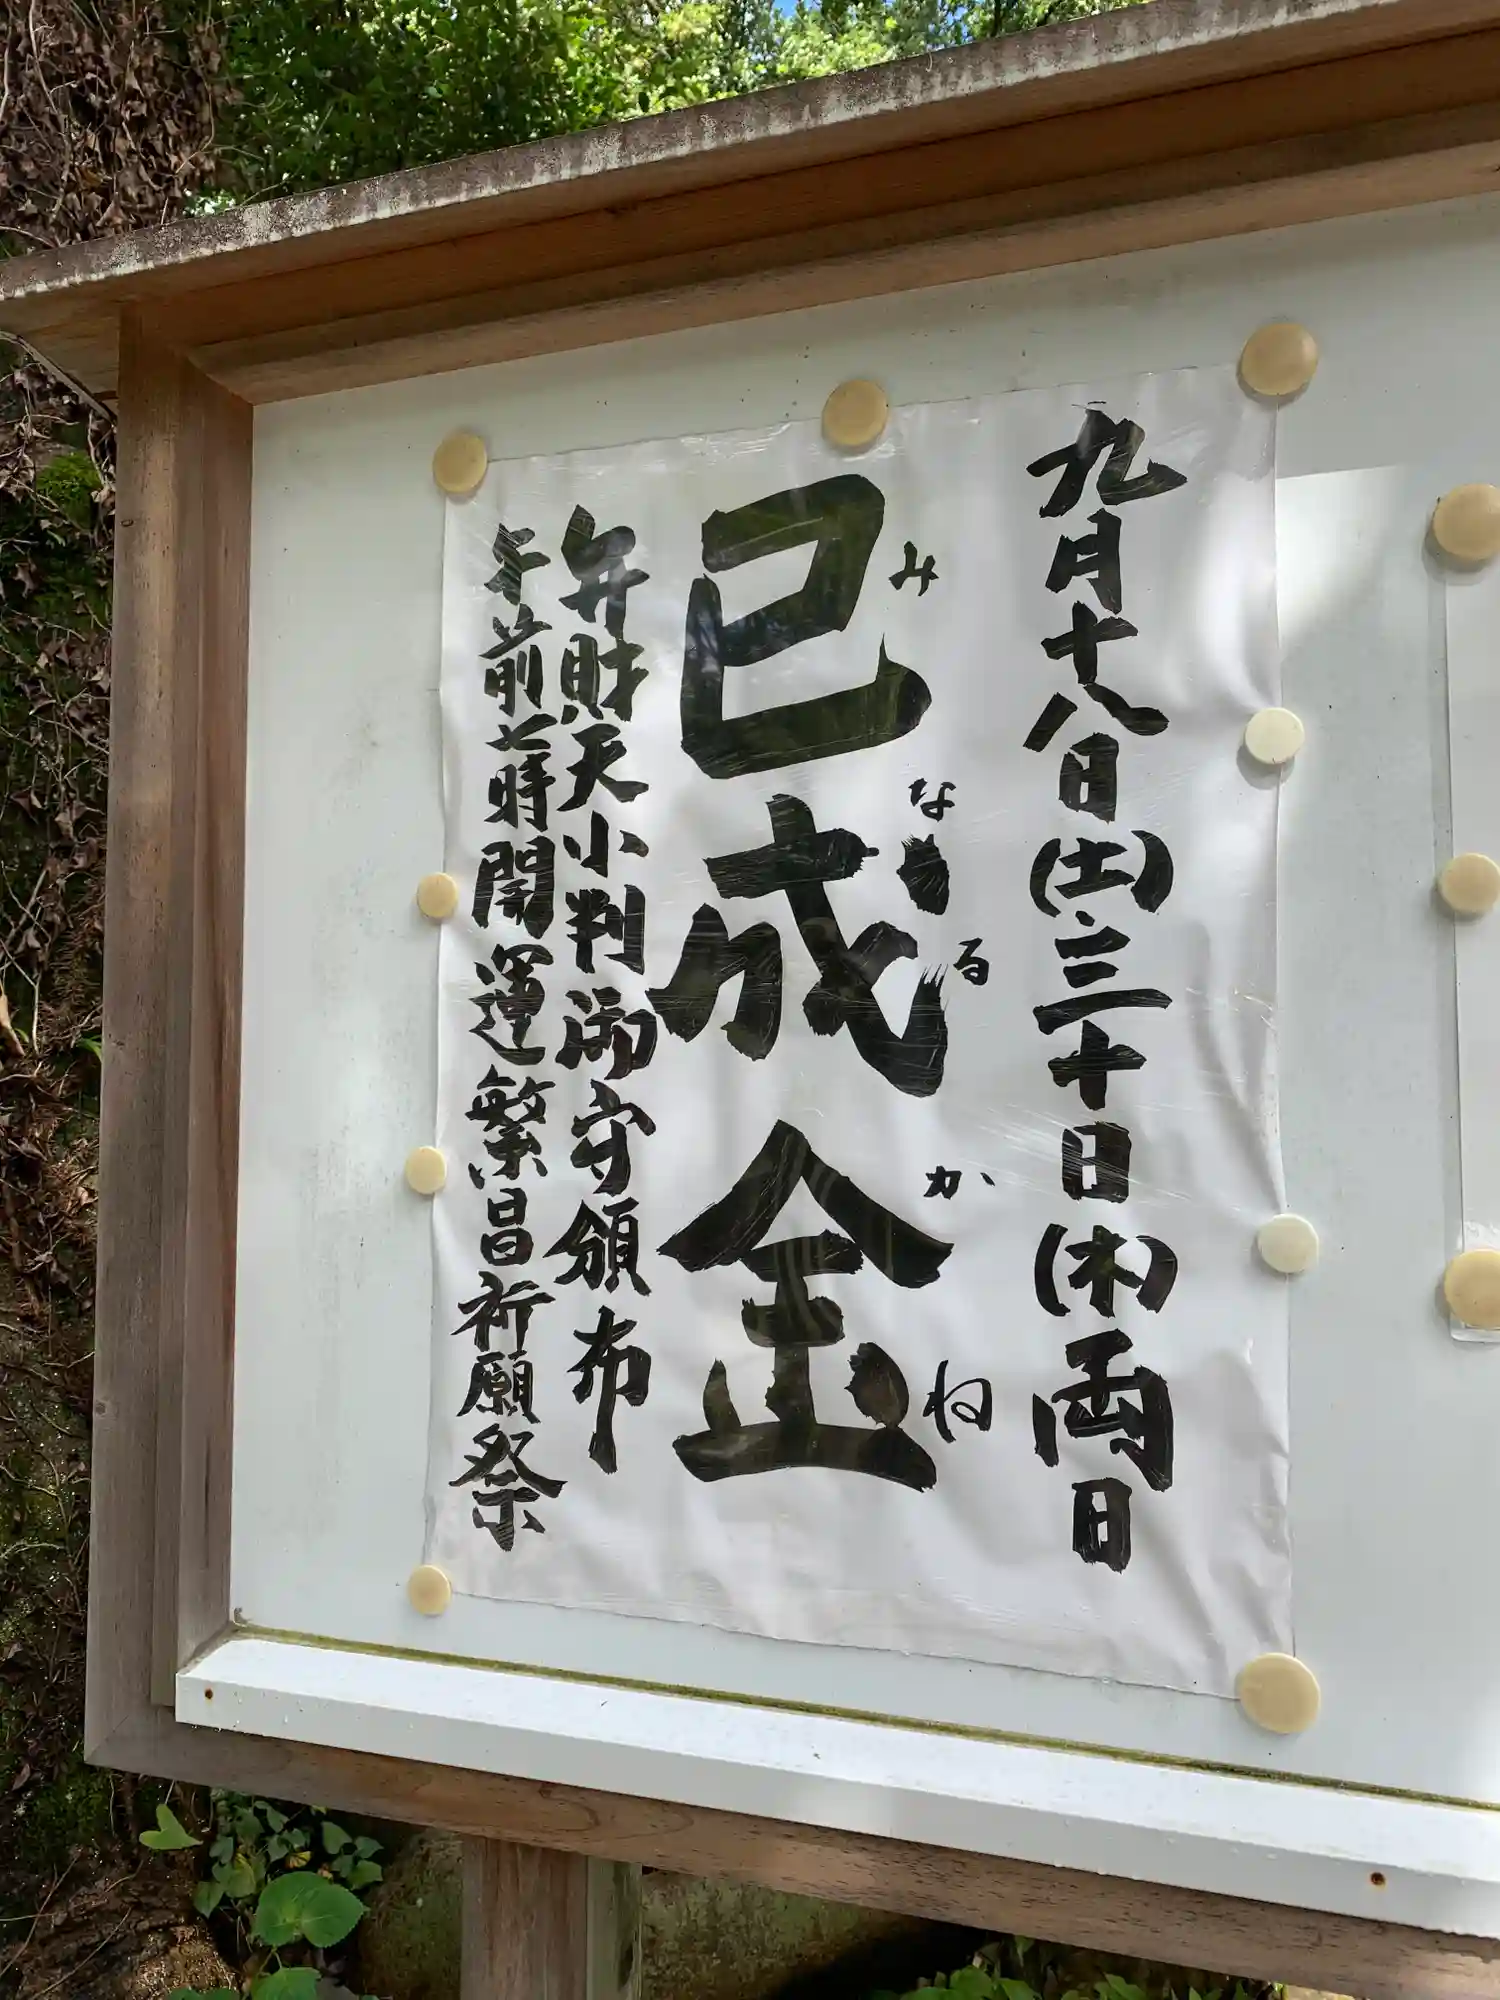 九月十八日(土)、三十日(木)両日
みなるかね
巳成金
弁財天小判御守頒布
午前七時開運繁昌祈願祭